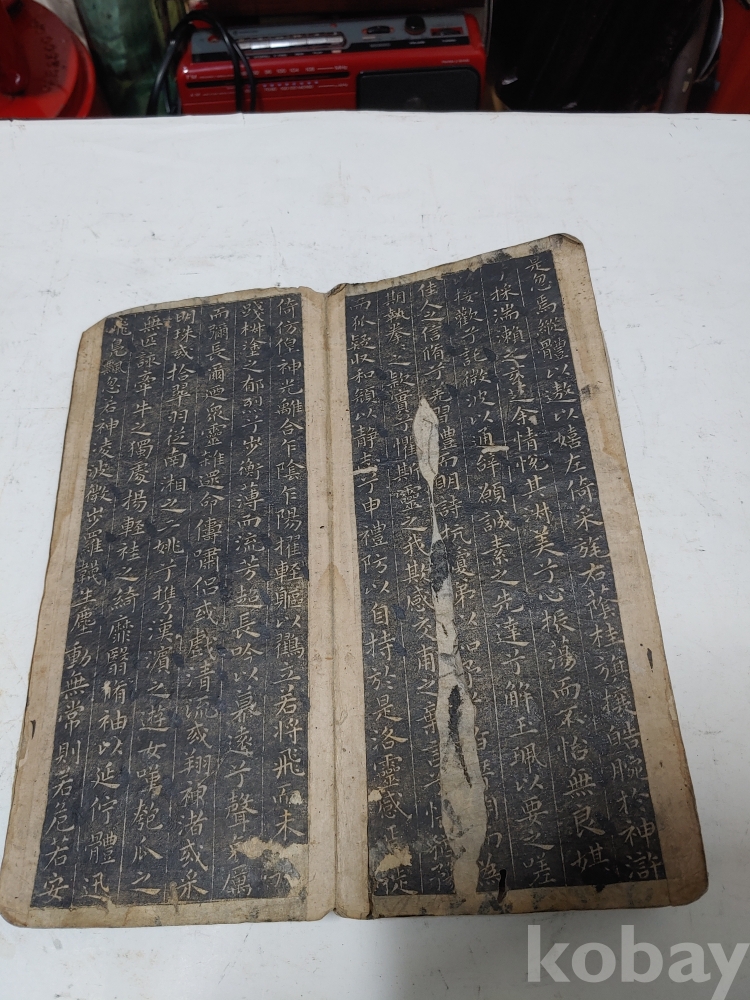 是忽焉縱體以遨以嬉左倚采旄右蔭桂旗攘皓腕於神滸
兮採湍瀨之玄芝余情悅其淑美兮心振蕩而不怡無良媒
接歡兮託微波以通辭願誠素之先達兮解玉珮以要之嗟
佳人之信脩兮羌習禮而明詩抗瓊珶以和 為
期執拳之款實兮懼斯靈之我欺感交甫之棄言兮悵猶
而狐疑收和顏以靜志兮申禮防以自持於是洛靈感 徙
倚仿偟神光離合乍陰乍陽擢輕軀以鶴立若將飛而未
踐椒塗之郁烈兮步衡薄而流芳超長吟以慕遠兮聲哀厲
而彌長爾迺眾靈雜遝命儔嘯侶或戲清流或翔神渚或采
明珠或拾翠羽從南湘之二姚兮攜漢濱之遊女嘆匏瓜之
無匹詠牽牛之獨處揚輕袿之綺靡翳脩袖以延佇體迅
飛鳧飄忽若神凌波微步羅襪生塵動無常則若危若安
kobay